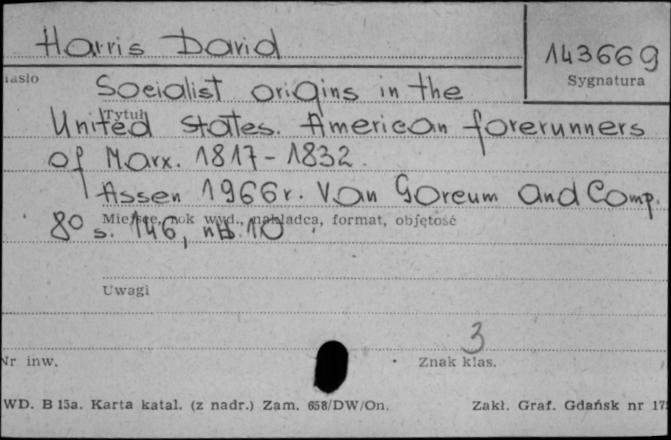 Harris David
143669
iasło
Sygnatura
Socialist origins in the
Tytuł
United States. American forerunners
of Marx. 1817-1832.
Assen 1966 r. Van Goreum and Comp.
Miejsce, rok wyd., nakładca, format, objętość
8o s. 146, nlb. 10
Uwagi
3
Nr inw.
Znak klas.
WD. B 15a. Karta katal. (z nadr.) Zam. 658/DW/On.
Zakł. Graf. Gdańsk nr 17